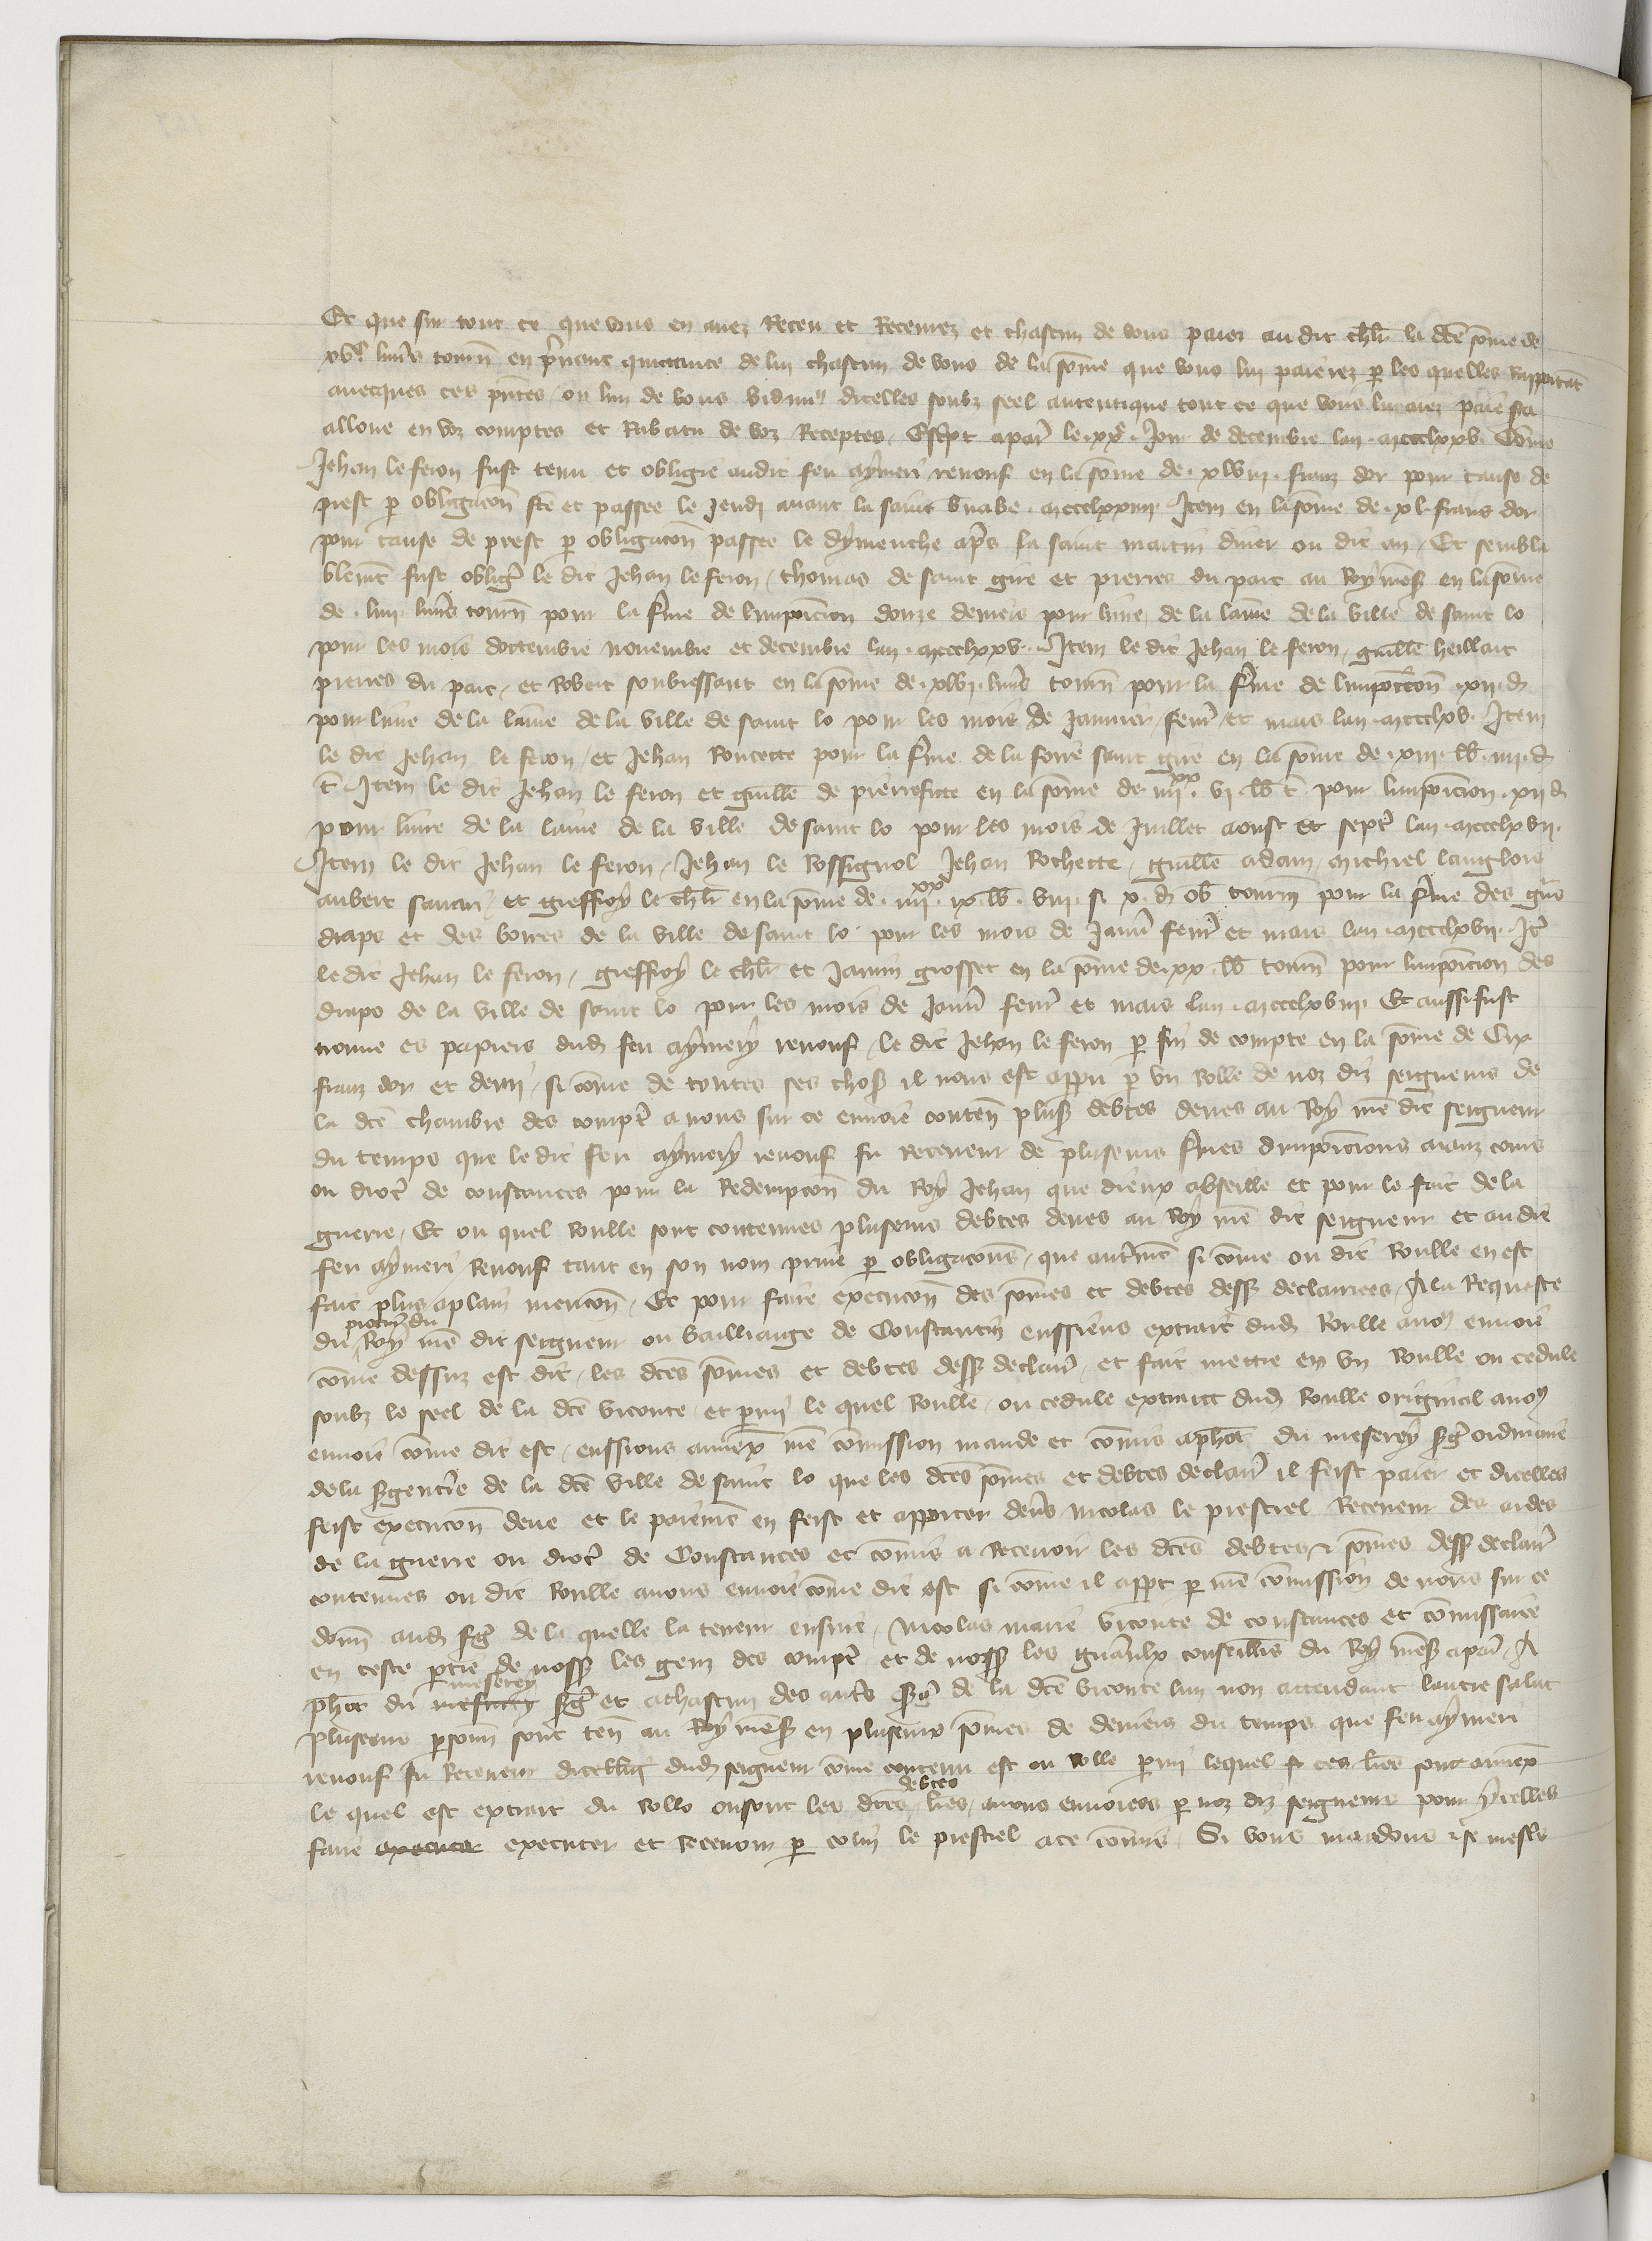 Et que sur tout ce que vous en avez Receu et Recevrez et chascun de vous paiez au dit chlr la dce some de
xvc livres tourn en prenant quittance de lui chascun de vous de la some que vous lui paierez p les quelles Rapportat
avecques ces pntes ou lun de vous vidimus dicelles soubz seel autentique tout ce que vous lui avez paie sra
alloue en voz comptes et Rabatu de voz Receptes Escript a par le xxe jour de decembre lan mccclxxv Come
Jehan le feron fust tenu et obligie audit feu aymeri renouf en la some de xlviii franz dor pour cause de
prest p obligacon fte et passee le jeudi avant la saint bnabe mccclxxiiii Item en la some de xl frans dor
pour cause de prest p obligacon passee le dymenche aps la saint martin diver ou dit an Et sembla
blemt fust oblige le dit Jehan le feron thomas de saint gire et pierres du parc au Roy mess en la some
de liii livres tourn pour la fme de limposicion douze deniers pour livre de la laine de la ville de saint lo
pour les mois doctembre novembre et decembre lan mccclxxv Item le dit Jehan le feron guille heillart
pierres du parc et Robert soubressaut en la some de xlvi livres tourn pour la fme de limposicion xii d
pour livre de la laine de la ville de saint lo pour les mois de janvier fevr et mars lan mccclxv Item
le dit Jehan le feron et Jehan Roncette pour la fme de la foire saint gire en la some de xiii lb iiii d
t Item le dit Jehan le feron et guille de pierrefitte en la some de iiii xx vi lb t pour limposicion xii d
pour livre de la laine de la ville de saint lo pour les mois de juillet aoust et sept lan mccclxvii
Item le dit Jehan le feron Jehan le Rossignol Jehan Rochette guille adam michiel langlois
aubert savari et gieffroy le chlr en la some de iiii xx ix lb viii s x d ob tourn pour la fme des gns
draps et des boires de la ville de saint lo pour les mois de janv fevr et mars lan mccclxvii It
le dit Jehan le feron gieffroy le chlr et Jamin grosset en la some de xx lb tourn pour limposicion des
draps de la ville de saint lo pour les mois de janv fevr et mars lan mccclxviii Et aussi fust
trouve es papiers dud feu aymery renouf le dit Jehan le feron p fin de compte en la some de Cix
franz dor et demi si come de toutes ses choss il nous est appu p un Rolle de noz diz seigneurs de
la dce chambre des compt a nous sur ce envoie conten pluss debtes deues au Roy me dit seigneur
du temps que le dit feu aymery renouf fu receveur de pluseurs fmes dimposicions aianz cours
ou dioc de coustances pour la Redempcon du Roy Jehan que dieux abseille et pour le fait de la
guerre Et ou quel Roulle sont contenues pluseurs debtes deues au Roy me dit seigneur et au dit
feu aymeri Renouf tant en son nom prive p obligacons que autrmt si come ou dit Roulle en est
fait plus aplain mencon Et pour faire execucon des somes et debtes dess declairees A la Requeste
du procur du Roy me dit seigneur ou bailliage de Constantin eussiens extrait dud Roulle a nous envoie
come dessuz est dit les dces somes et debtes dess declair et fait mettre en un Roulle ou cedule
soubz le seel de la dce viconte et parmi le quel Roulle ou cedule extraict dud Roulle original a nous
envoie come dit est eussions annexe me comission mande et comis a phot du meserey sg ordinaire
de la sgentrie de la dce ville de saint lo que les dces somes et debtes declair il feist paier et dicelles
feist execucon deue et le paiemt en feist et apporter devs nicolas le prestrel Receveur des aides
de la guerre ou dioc de Constances et comis a Recevoir les dces debtes & somes dess declair
contenues ou dit Roulle a nous envoie come dit est si come il appt p me comission de nous sur ce
donn aud sg de la quelle la teneur ensuit Nicolas marie viconte de constances et comissaire
en ceste ptie de noss les genz des compt et de noss les gnaulx conseillrs du Roy mess a par A
phot du mesnery meserey sg et a chascun des autrs sg de la dce viconte lun non attendant lautre salut
pluseurs psonn sont ten au Roy mess en pluseurs somes de deniers du temps que feu aymeri
renouf fu Receveur dud seigneur come contenu est ou rolle parmi lequel ces lres sont annex
le quel est extrait du rolle ou sont les dces debtes lres a nous envoiees p noz diz seigneurs pour ycelles
faire executer executer et Recevoir p colin le prestrel a ce comis Si vous mandons & se mest